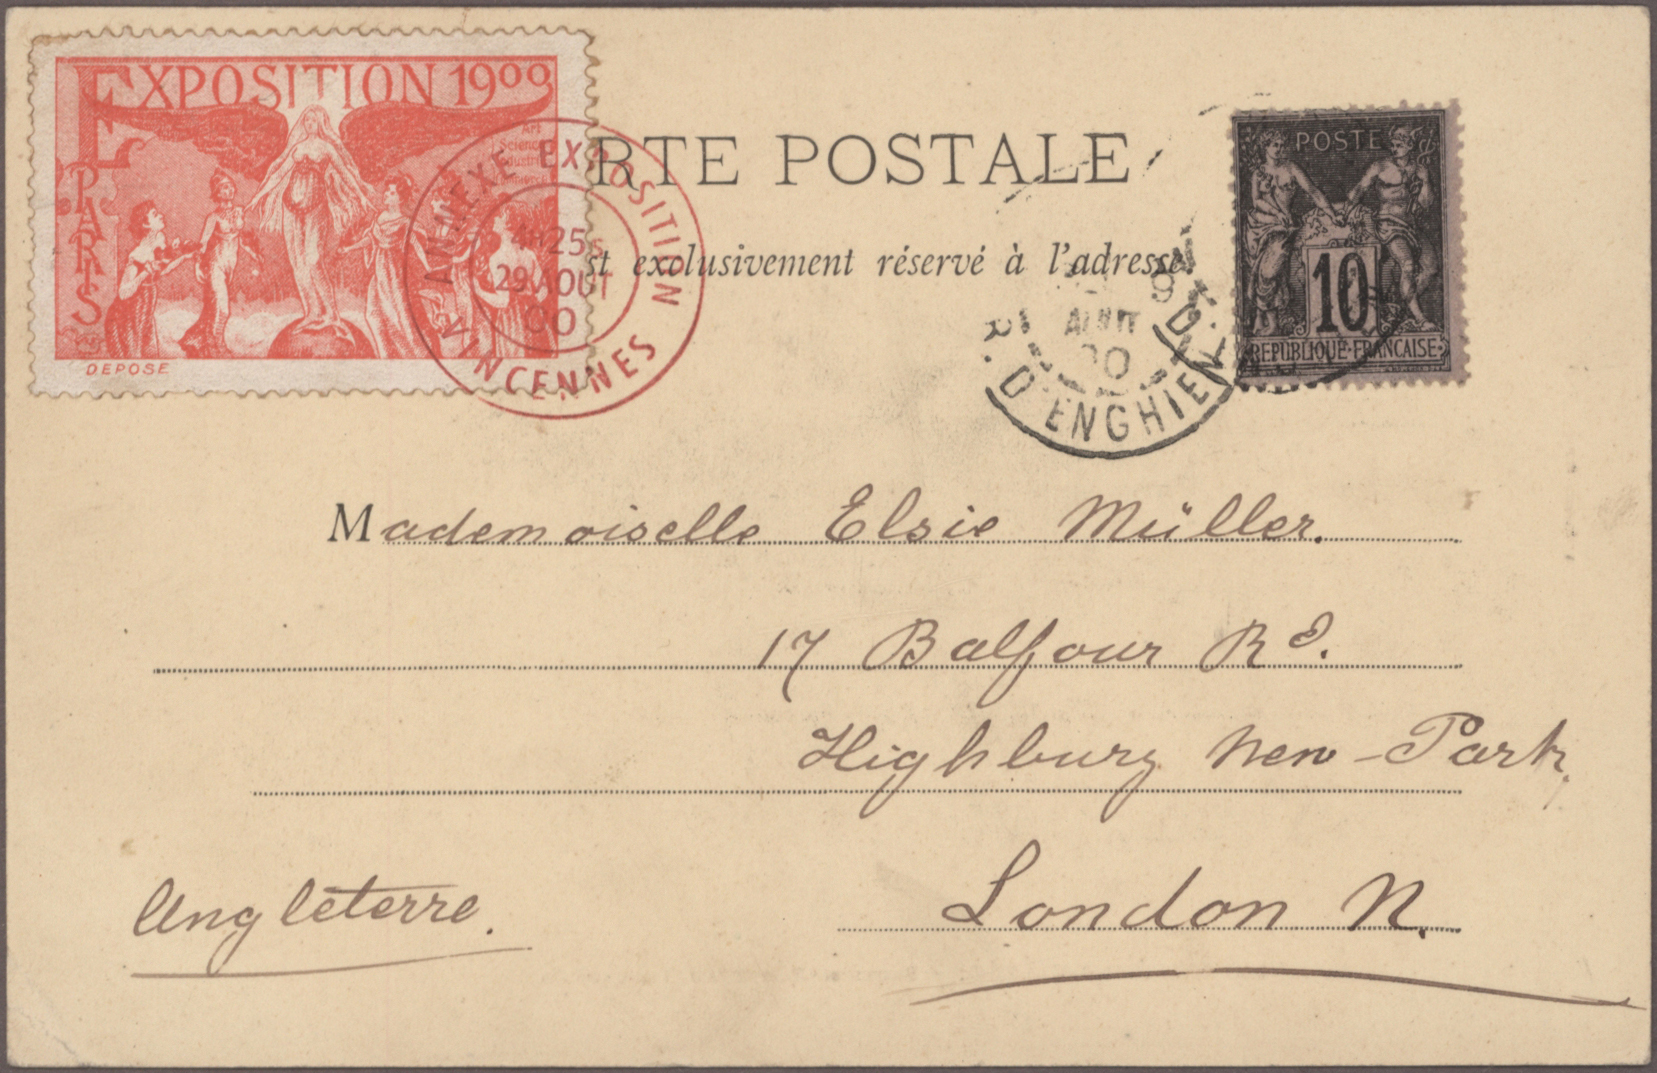 EXPOSITION 1900
PARIS
Art
Science
Industrie
DEPOSE
ANNEXE EXPOSITION
4H25S
29 AOUT
00
VINCENNES
RTE POSTALE
st exclusivement réservé à l'adresse
R. D'ENGHIEN
AOUT
00
POSTE
10
REPUBLIQUE FRANCAISE
Mademoiselle Elsie Müller.
17 Balfour Rd.
Highbury New-Park,
London N.
Angleterre.